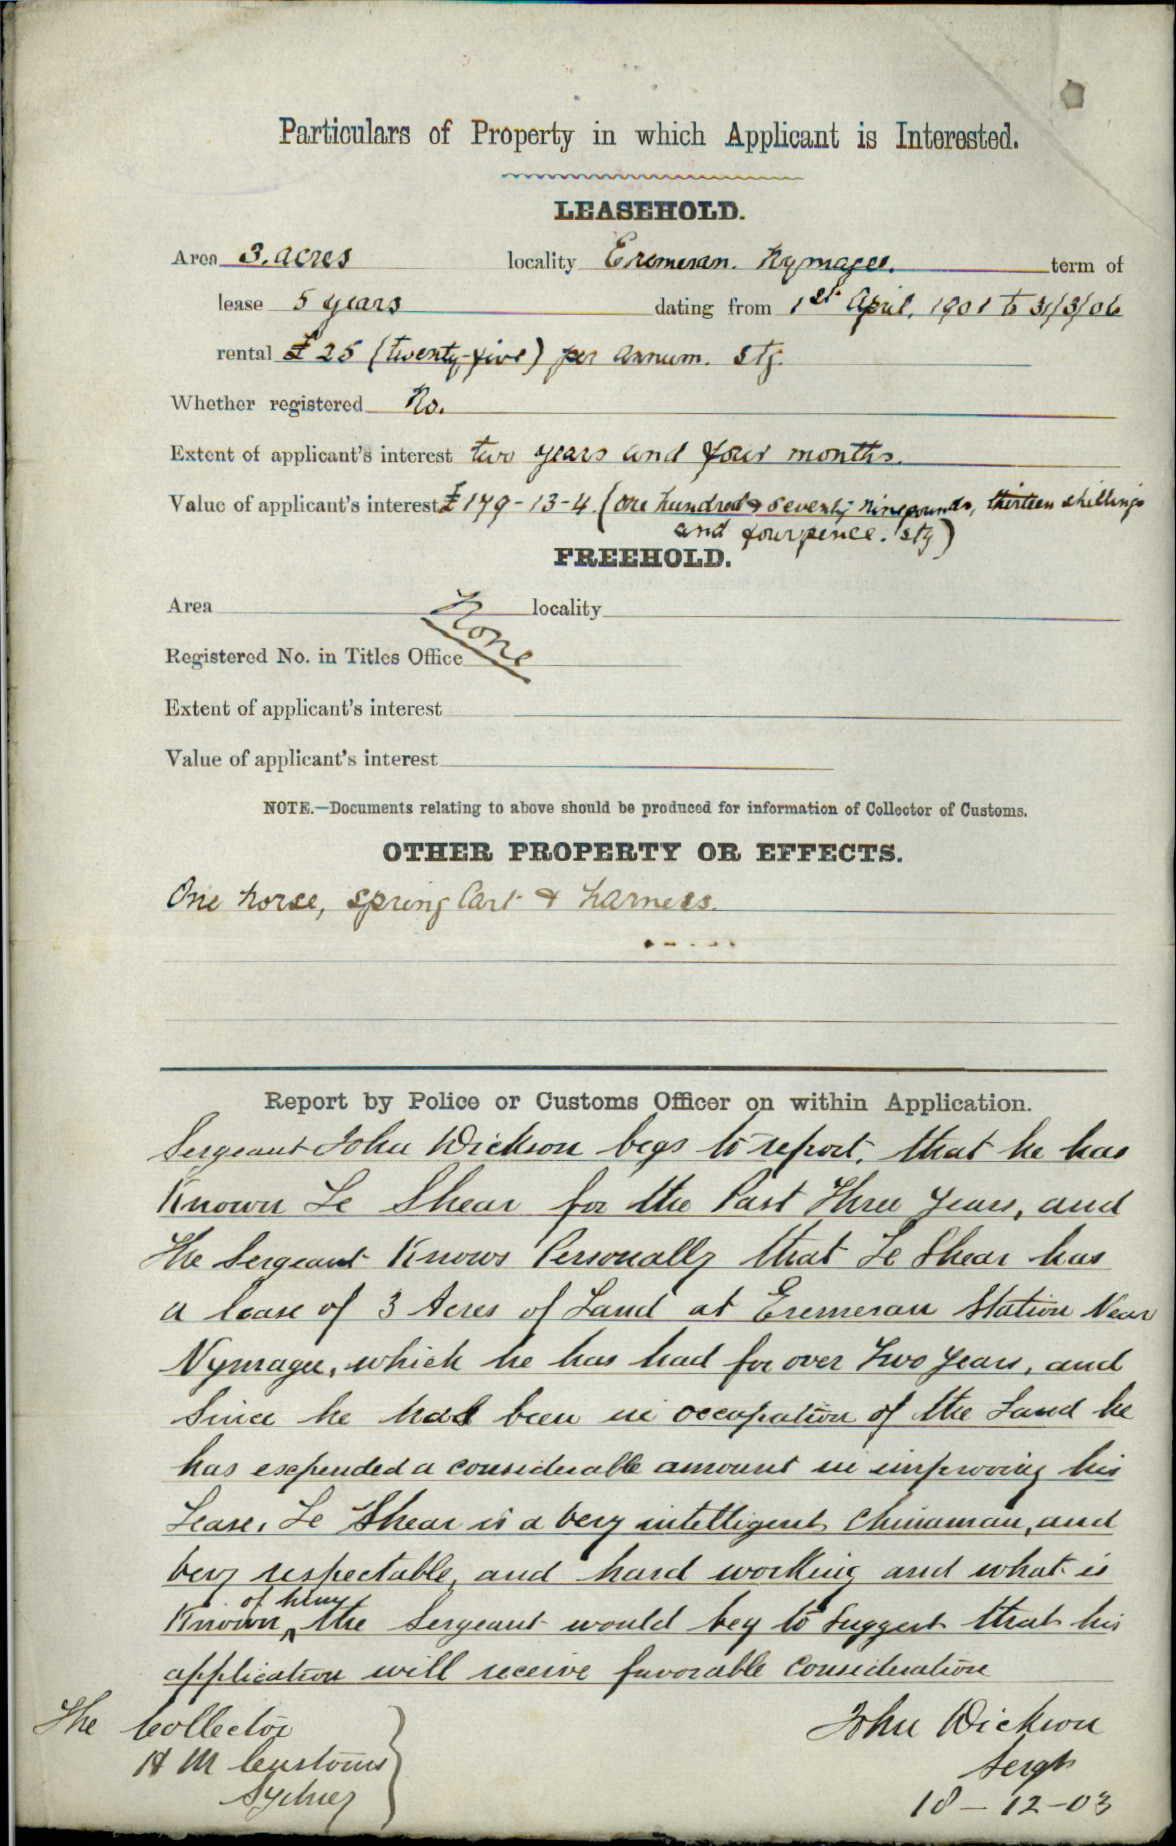 Particulars of Property in which Applicant is Interested.
LEASEHOLD.
Area 3. acres locality Eremeran. Nymagee. term of
lease 5 years dating from 1st April, 1901 to 31/3/06
rental £25 (twenty-five) per annum. Stg.
Whether registered No.
Extent of applicant's interest two years and four months.
Value of applicant's interest £179-13-4. (one hundred & seventy nine pounds, thirteen shillings
and fourpence. stg)
FREEHOLD.
Area None locality
Registered No. in Titles Office
Extent of applicant's interest
Value of applicant's interest
NOTE.—Documents relating to above should be produced for information of Collector of Customs.
OTHER PROPERTY OR EFFECTS.
One horse, spring Cart & harness.
Report by Police or Customs Officer on within Application.
Sergeant John Dickson begs to report, that he has
Known Le Shear for the Past Three years, and
the Sergeant Knows Personally that Le Shear has
a lease of 3 Acres of Land at Eremeran Station Near
Nymagee, which he has had for over Two years, and
Since he had been in occupation of the Land he
has expended a considerable amount in improving his
Lease, Le Shear is a very intelligent Chinaman, and
very respectable, and hard working and what is
Known of him, the Sergeant would beg to Suggest that his
application will receive favorable Consideration
The Collector
H M Customs
Sydney
John Dickson
Sergt
18-12-03